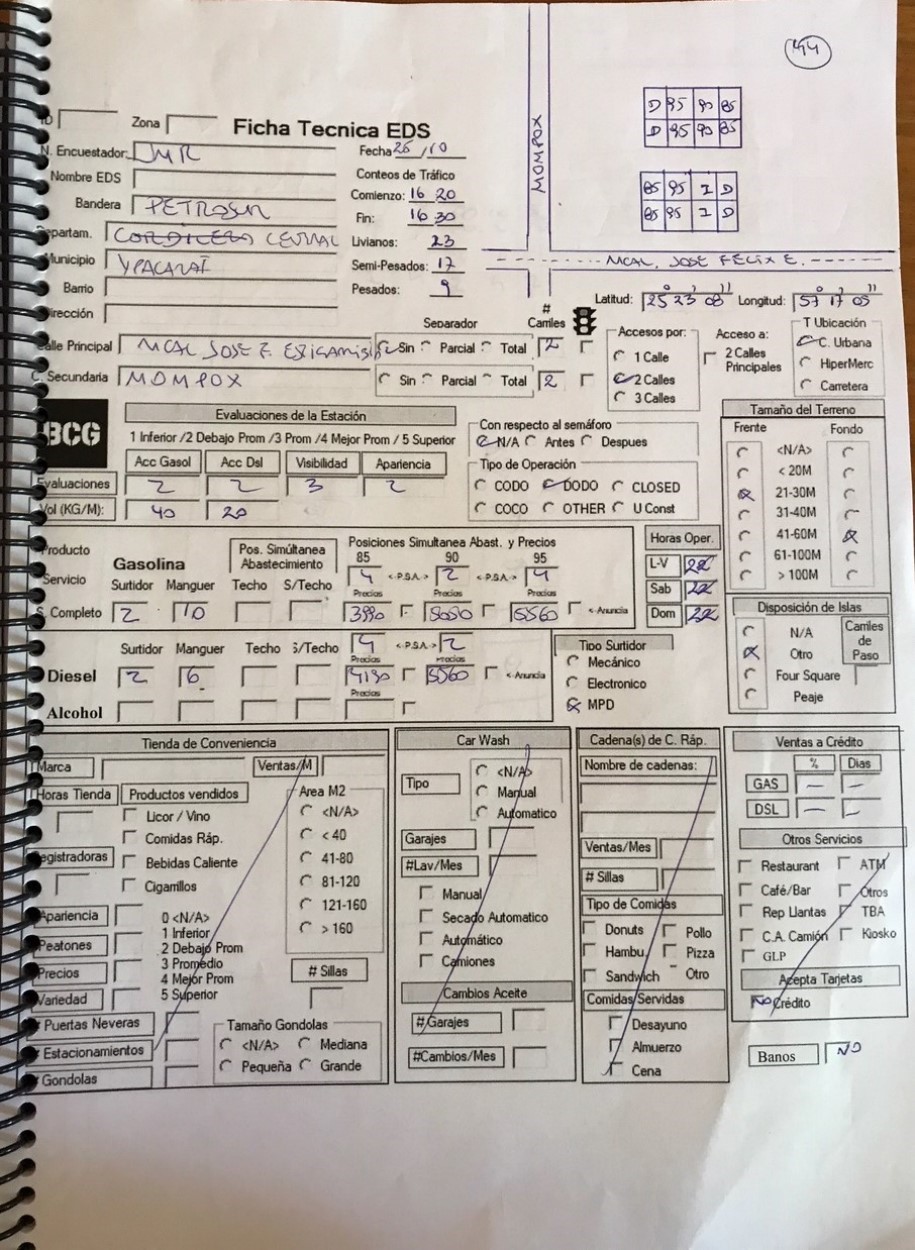 44
D 95 90 85
D 95 90 85
MOMPOX
85 95 I D
85 95 I D
MCAL. JOSE FÉLIX E.
ID Zona Ficha Tecnica EDS
N. Encuestador: JMR Fecha 26/10
Nombre EDS Conteos de Tráfico
Bandera PETROSUR Comienzo: 16 20
Fin: 16 30
Departam. CENTRAL Livianos: 23
Municipio YPACARAÍ Semi-Pesados: 17
Barrio Pesados: 9
Dirección Latitud: 25 23 08 Longitud: 57 17 05
Separador # Carriles
Calle Principal MCAL JOSE F. Sin Parcial Total 2
C. Secundaria MOMPOX Sin Parcial Total 2
Accesos por:
1 Calle
2 Calles
3 Calles
Acceso a:
2 Calles Principales
T Ubicación
C. Urbana
HiperMerc
Carretera
BCG
Evaluaciones de la Estación
1 Inferior /2 Debajo Prom /3 Prom /4 Mejor Prom / 5 Superior
Acc Gasol Acc Dsl Visibilidad Apariencia
Evaluaciones 2 2 3 2
Vol (KG/M): 40 20
Con respecto al semáforo
N/A Antes Despues
Tipo de Operación
CODO DODO CLOSED
COCO OTHER U Const
Tamaño del Terreno
Frente Fondo
<N/A>
< 20M
21-30M
31-40M
41-60M
61-100M
> 100M
Producto Gasolina Pos. Simúltanea Abastecimiento Posiciones Simultanea Abast. y Precios
85 90 95
Servicio 4 <-P.S.A.-> 2 <-P.S.A.-> 4
Surtidor Manguer Techo S/Techo Precios Precios Precios
S. Completo 2 10 3990 5050 5560 <-Anuncia
Horas Oper.
L-V
Sab
Dom
Surtidor Manguer Techo S/Techo 4 <-P.S.A.-> 2
Precios Precios
Diesel 2 6 4190 5560 <-Anuncia
Precios
Alcohol
Tipo Surtidor
Mecánico
Electronico
MPD
Disposición de Islas
N/A
Otro
Four Square
Peaje
Carriles de Paso
Tienda de Conveniencia
Marca Ventas/M
Horas Tienda Productos vendidos
Licor / Vino
Comidas Ráp.
Registradoras Bebidas Caliente
Cigarrillos
Area M2
<N/A>
< 40
41-80
81-120
121-160
> 160
Apariencia 0 <N/A>
Peatones 1 Inferior
2 Debajo Prom
Precios 3 Promedio
4 Mejor Prom
Variedad 5 Superior
# Sillas
# Puertas Neveras
# Estacionamientos
# Gondolas
Tamaño Gondolas
<N/A> Mediana
Pequeña Grande
Car Wash
Tipo
<N/A>
Manual
Automatico
Garajes
#Lav/Mes
Manual
Secado Automatico
Automático
Camiones
Cambios Aceite
#Garajes
#Cambios/Mes
Cadena(s) de C. Ráp.
Nombre de cadenas:
Ventas/Mes
# Sillas
Tipo de Comidas
Donuts Pollo
Hambu. Pizza
Sandwich Otro
Comidas Servidas
Desayuno
Almuerzo
Cena
Ventas a Crédito
% Dias
GAS — —
DSL — —
Otros Servicios
Restaurant ATM
Café/Bar Otros
Rep Llantas TBA
C.A. Camión Kiosko
GLP
Acepta Tarjetas
NO Crédito
Banos NO